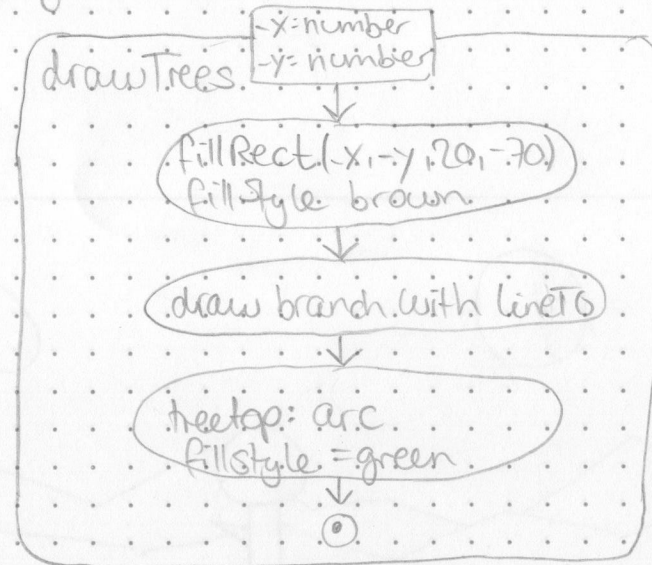 -x=number
-y=number
drawTrees
fillRect(-x,-y,20,-70)
fillStyle brown
draw branch with lineTo
treetop: arc
fillstyle = green